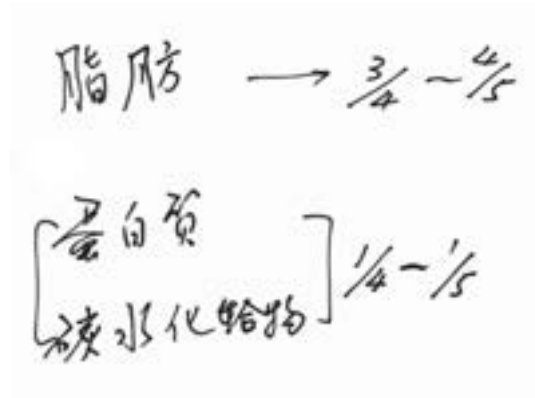 脂肪 → 3/4 ~ 4/5
[蛋白质
碳水化合物] 1/4 ~ 1/5